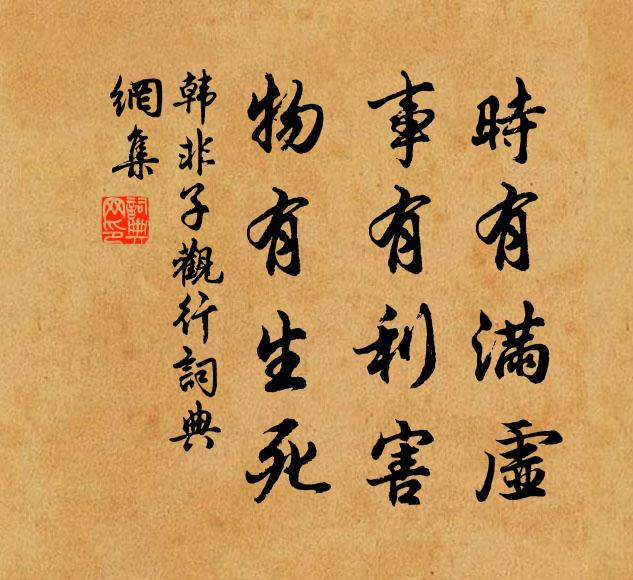 時有滿虛
事有利害
物有生死
韩非子觀行詞典
網集
詞典
网印